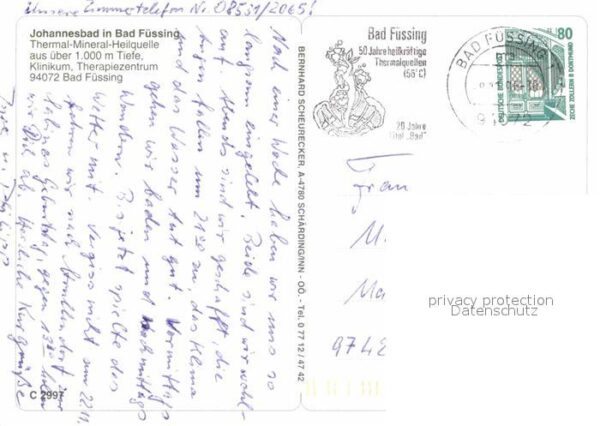 Unsere Zimmertelefon Nr. 08531/2065!
Johannesbad in Bad Füssing
Thermal-Mineral-Heilquelle
aus über 1.000 m Tiefe,
Klinikum, Therapiezentrum
94072 Bad Füssing
Nach einer Woche haben wir uns so
langsam eingelebt. Beide sind wir wohl-
auf. Abends sind wir geschafft, die
Augen fallen um 21°° zu, das Klima
und das Wasser tut gut. Vormittags
gehen wir baden und Nachmittags
wandern. Bis jetzt spielte das
Wetter mit. Vergiss nicht am 22.11.
fahren wir nach
Geburtstag, gegen
wir Dich ab. Herzliche Kurgrüße
C 2997
BERNHARD SCHEURECKER, A-4780 SCHÄRDING/INN - OÖ. - Tel. 0 77 12 / 47 42
Bad Füssing
50 Jahre heilkräftige
Thermalquellen
(56°C)
20 Jahre
Titel „Bad"
BAD FÜSSING 1
94072
80
DEUTSCHE BUNDESPOST
ZECHE ZOLLERN II DORTMUND
Frau
M
Ma
9742
privacy protection
Datenschutz